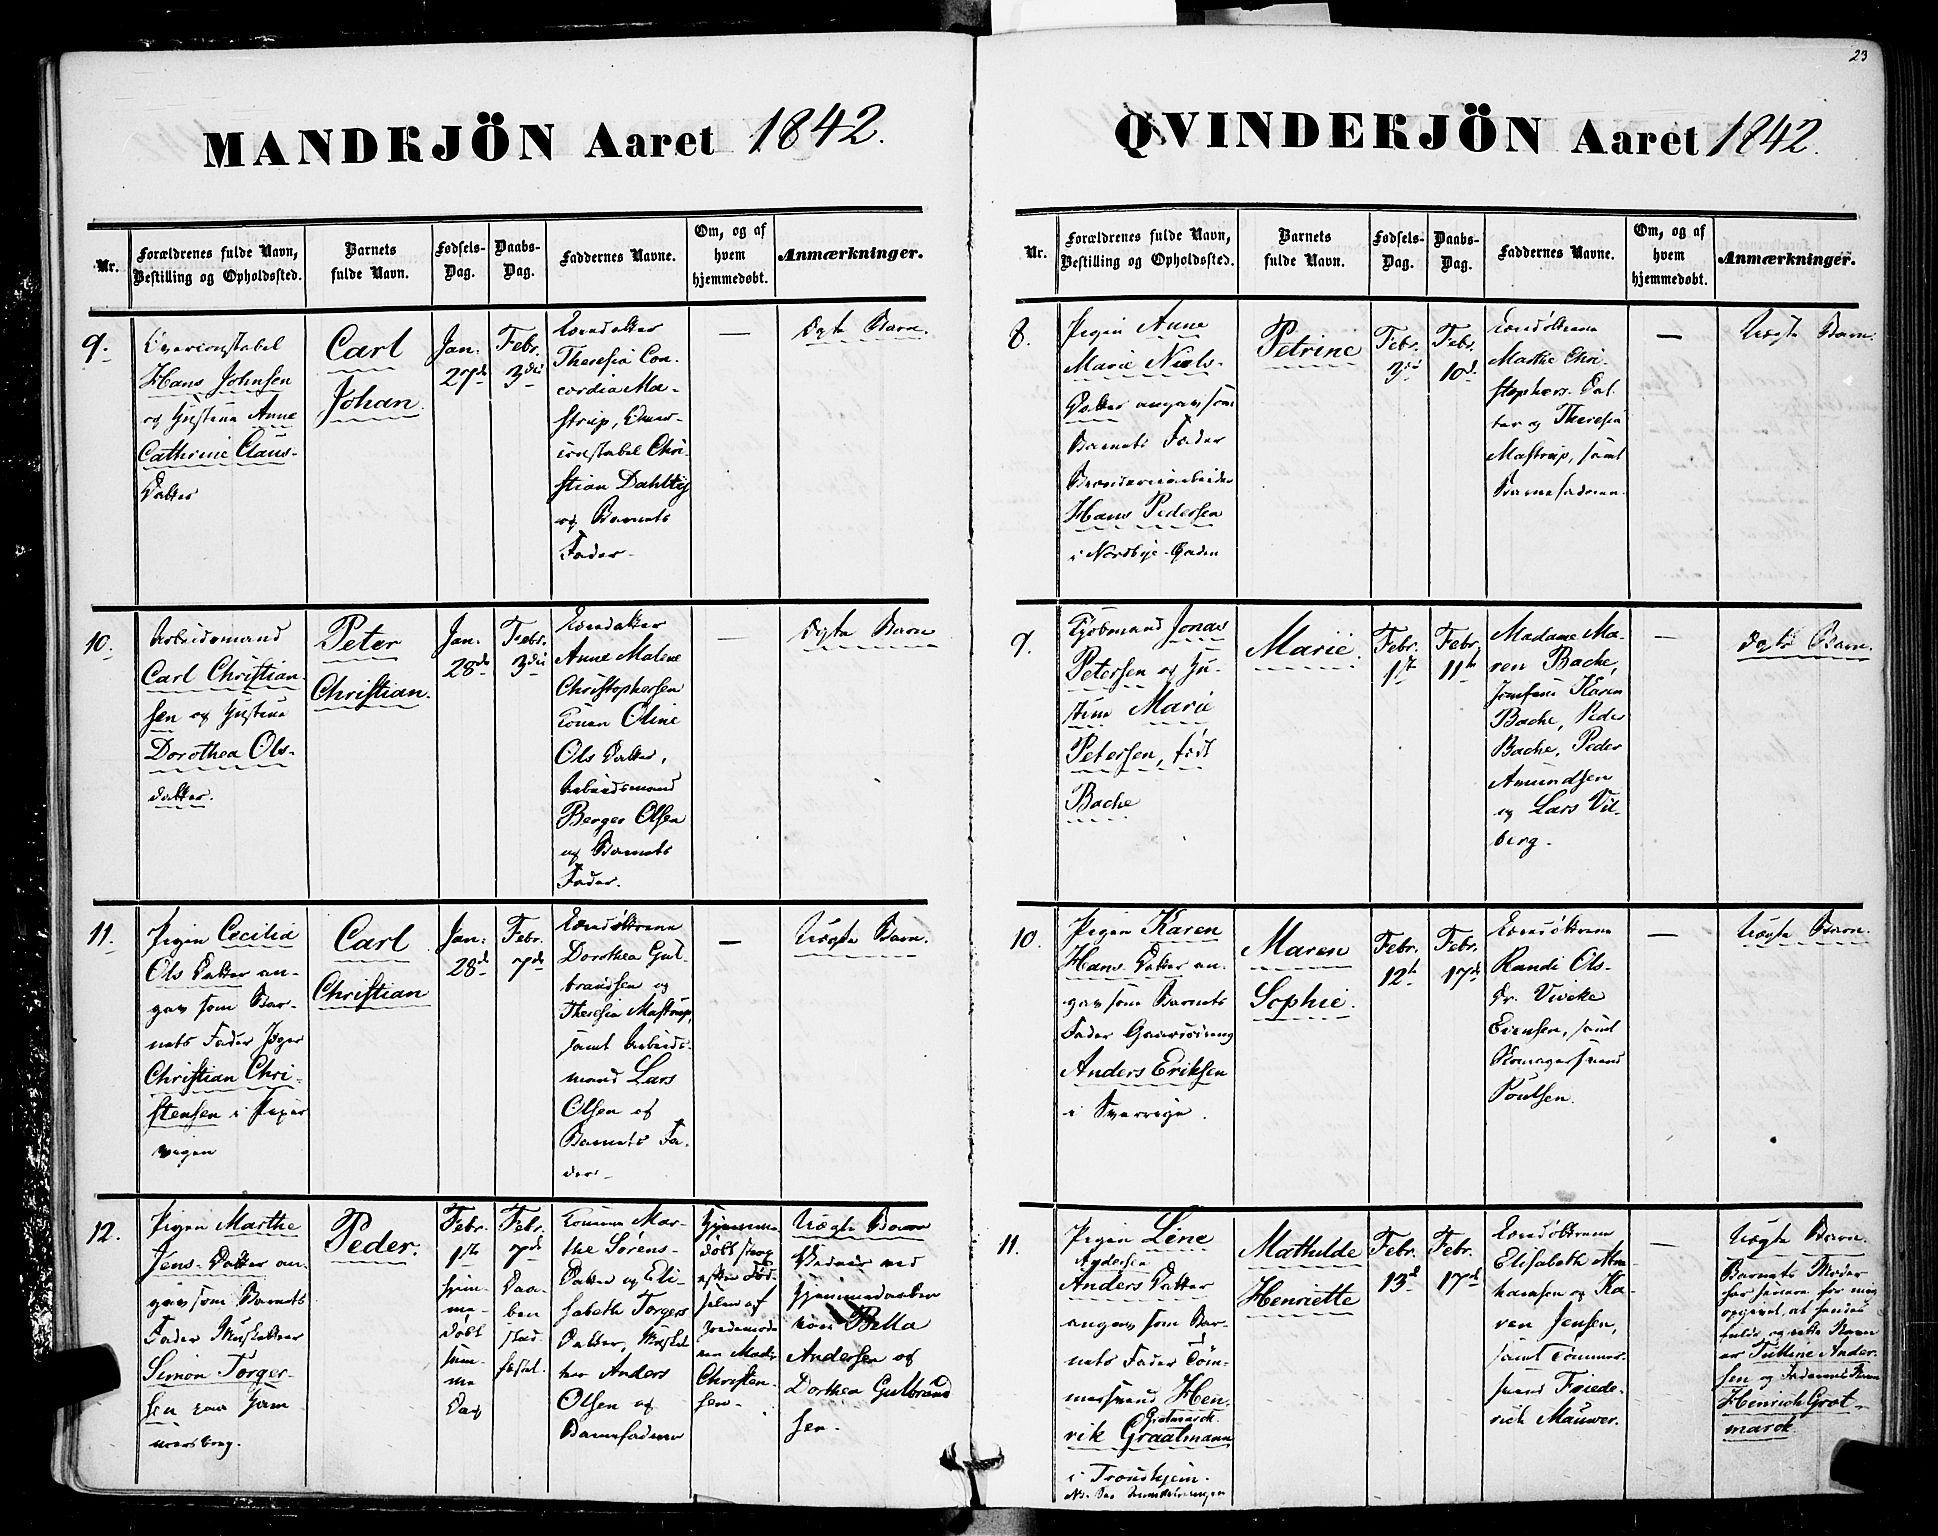 23
MANDKJÖN Aaret 1842.
Nr.
Forældrenes fulde Navn,
Bestilling og Opholdssted.
Barnets
fulde Navn.
Fødsels-
Dag.
Daabs-
Dag.
Faddernes Navne.
Om, og af
hvem
hjemmedøbt.
Anmærkninger.
9.
Hans Johnsen
og Hustrue Anne
Cathrine Claus-
Datter
Carl
Johan.
Jan.
27de
Febr.
3die
Theresia Con-
cordia Ma-
strup,
constabel Chri-
stian Dahlby
og Barnets
Fader.
—
Ægte Barn.
10.
Arbeidsmand
Carl Christian-
sen og Hustrue
Dorothea Ols-
datter.
Peter
Christian.
Jan.
28de
Febr.
3die
Anne Malene
Christophersen
Konen Oline
Ols Datter,
Arbeidsmand
Berger Olsen
og Barnets
Fader.
—
Ægte Barn
11.
Pigen Cecilia
Ols Datter an-
gav som Bar-
nets Fader Jæger
Christian Chri-
stensen i Piper
vigen
Carl
Christian
Jan.
28de
Febr.
7de
Dorothea Gul-
brandsen og
Theresia Mastrup,
samt Arbeids-
mand Lars
Olsen og
Barnets Fa-
der.
—
Uægte Barn.
12.
Pigen Marthe
Jens-Datter an-
gav som Barnets
Fader Musketeer
Simon Torger-
sen
Peder.
Febr.
1ste
hjem-
me-
døbt
sam-
me
Dag
Febr.
7de
Daa-
ben
stad-
fæstet.
Konerne Mar-
the Sørens-
Datter og Eli-
sabeth Torgers
Datter, Musket-
teer Anders
Olsen og
Barnefaderen
Hjemme-
døbt strax
efter Fød-
selen af
Jordemode-
ren Mad.
Christen-
sen.
Uægte Barn
Vidner ved
Hjemmedaaben
vare Bella
Andersen og
Dorthea Gulbrand
sen.
QVINDEKJÖN Aaret 1842.
Nr.
Forældrenes fulde Navn,
Bestilling og Opholdssted.
Barnets
fulde Navn.
Fødsels-
Dag.
Daabs-
Dag.
Faddernes Navne.
Om, og af
hvem
hjemmedøbt.
Anmærkninger.
8.
Pigen Anne
Marie Niels-
Datter angav som
Barnets Fader
Hans Pedersen
i Nordbye-Gaden
Petrine
Febr.
3die
Febr.
10de
Marthe Chri-
stophers-Dat-
ter og Theresia
Mastrup, samt
Barnefaderen.
—
Uægte Barn.
9.
Kjøbmand Jonas
Petersen og Hu-
strue Marie
Petersen, født
Bache
Marie.
Febr.
1ste
Febr.
11te
Madame Ma-
ren Bache,
Jomfrue Karen
Bache, Peder
Bache, Peder
Amundsen
og Lars Vil-
berg.
—
Ægte Barn.
10.
Pigen Karen
Hans-Datter an-
gav som Barnets
Fader
Anders Eriksen
i Sverrige.
Maren
Sophie.
Febr.
12te
Febr.
17de
Randi Ols-
Dr. Viveke
Evensen, samt
Skomagersvend
Poulsen.
—
Uægte Barn.
11.
Pigen Lene
Andersen
Anders Datter
angav som Bar-
nets Fader Tøm-
mersvend Hen-
Grotmarck
rik Graatmann
i Trondhjem.
NB. See Anmærkningen
Mathilde
Henriette
Febr.
13de
Febr.
17de
Elisabeth Abra-
hamsen og Ka-
ren Jensen,
samt Tømmer-
svend Friede-
rich Maurer.
—
Uægte Barn.
Barnets Moder
har senere for mig
opgivet, at hendes
fulde og rette Navn
er Tulline Ander-
sen og Faderens Navn
Henrich Grot-
marck.